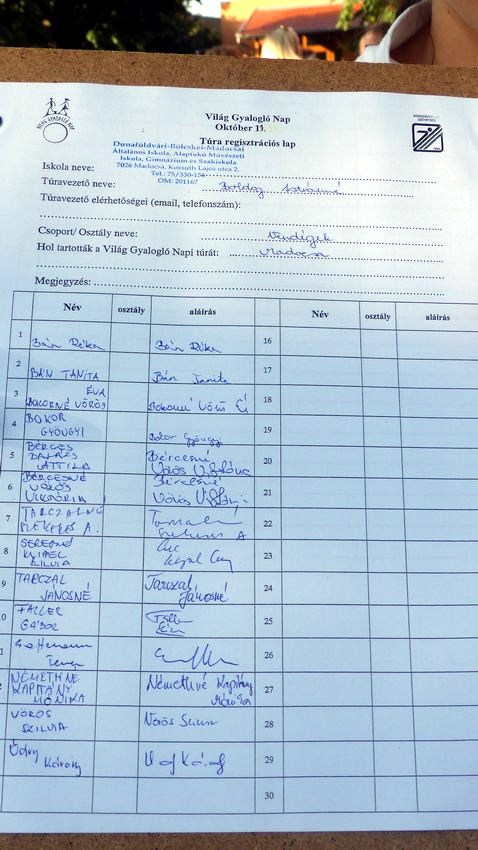 VILÁG GYALOGLÓ NAP
Világ Gyalogló Nap
Október 11.
Túra regisztrációs lap
Dunaföldvári-Bölcskei-Madocsai
Általános Iskola, Alapfokú Művészeti
Iskola, Gimnázium és Szakiskola
7026 Madocsa, Kossuth Lajos utca 2.
Tel.: 75/330-154
OM: 201167
Iskola neve:
Túravezető neve:
Túravezető elérhetőségei (email, telefonszám):
Csoport/ Osztály neve: Vendégek
Hol tartották a Világ Gyalogló Napi túrát: Madocsa
Megjegyzés:
Név osztály aláírás Név osztály aláírás
1 Bán Réka Bán Réka 16
2 BÁN TANITA Bán Tanita 17
3 BOKORNÉ VÖRÖS ÉVA Bokorné Vörös É 18
4 BOKOR GYÖNGYI Bokor Gyöngyi 19
5 BERCES BALÁZS ATTILA Bércesné Vörös Viktória 20
6 BERCESNÉ VÖRÖS VIKTÓRIA Bércesné Vörös Viktória 21
7 TARCZALNÉ SZEKERES A. Szekeres A 22
8 SZILVIA 23
9 TARCZAL JÁNOSNÉ Tarczal Jánosné 24
10 FALLER GÁBOR 25
26
NÉMETHNÉ KAPITÁNY MÓNIKA Némethné Kapitány Mónika 27
VÖRÖS SZILVIA Vörös Szilvia 28
Károly 29
30